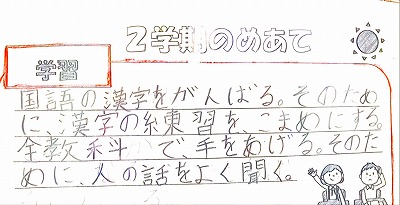 2学期のめあて
学習
国語の漢字をがんばる。そのため
に、漢字の練習を、こまめにする。
全教科で、手をあげる。そのた
めに、人の話をよく聞く。